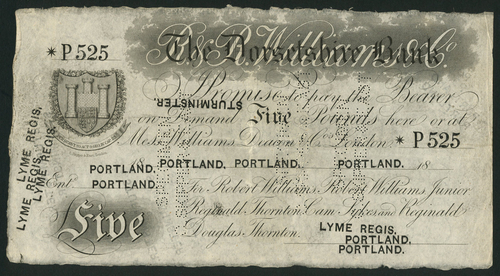 R & R Williams & Co
The Dorsetshire Bank
* P 525
I Promise to pay the Bearer
STURMINSTER.
on Demand Five Pounds here or at
Mess. Williams Deacon & Co. London * P 525
LYME REGIS.
LYME REGIS.
LYME REGIS.
PORTLAND. PORTLAND. PORTLAND. PORTLAND. 18
Ent. PORTLAND
For Robert Williams, Robert Williams Junior
Reginald Thornton, Cam Sykes and Reginald
Douglas Thornton.
£ Five
LYME REGIS.
PORTLAND.
PORTLAND.